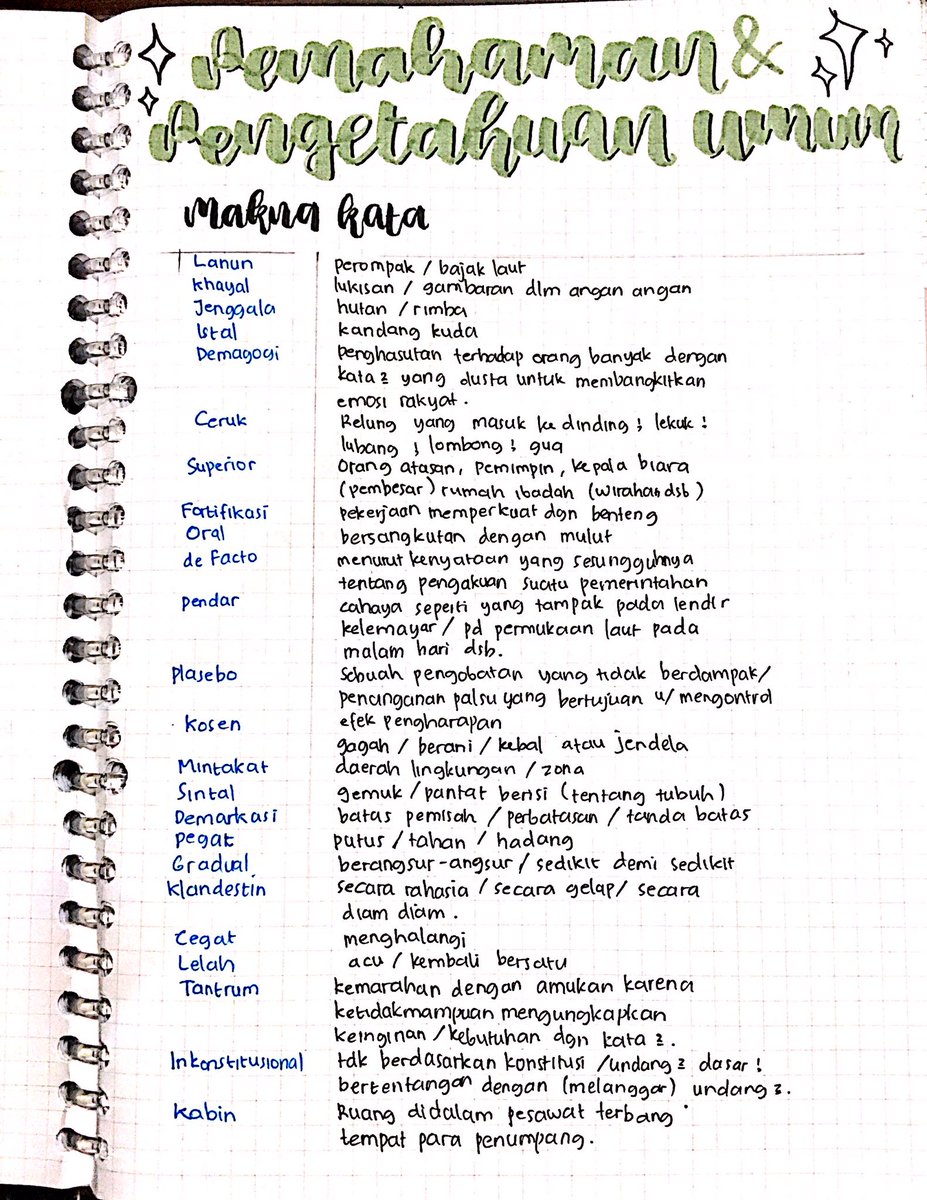 Pemahaman &
Pengetahuan Umum
Makna kata
Lanun perompak / bajak laut
khayal lukisan / gambaran dlm angan angan
Jenggala hutan / rimba
Istal kandang kuda
Demagogi penghasutan terhadap orang banyak dengan
kata2 yang dusta untuk membangkitkan
emosi rakyat.
Ceruk Relung yang masuk ke dinding ; lekuk ;
lubang ; lombong ; gua
Superior Orang atasan, pemimpin, kepala biara
(pembesar) rumah ibadah (wirahan dsb)
Fortifikasi pekerjaan memperkuat dgn benteng
Oral bersangkutan dengan mulut
de Facto menurut kenyataan yang sesungguhnya
tentang pengakuan suatu pemerintahan
pendar cahaya seperti yang tampak pada lendir
kelemayar / pd permukaan laut pada
malam hari dsb.
Plasebo sebuah pengobatan yang tidak berdampak/
penanganan palsu yang bertujuan u/ mengontrol
efek pengharapan
Kosen gagah / berani / kebal atau jendela
Mintakat daerah lingkungan / zona
Sintal gemuk / pantat berisi (tentang tubuh)
Demarkasi batas pemisah / perbatasan / tanda batas
pegat putus / tahan / hadang
Gradual berangsur-angsur / sedikit demi sedikit
klandestin secara rahasia / secara gelap / secara
diam diam.
Cegat menghalangi
Lelah acu / kembali bersatu
Tantrum kemarahan dengan amukan karena
ketidakmampuan mengungkapkan
keinginan / kebutuhan dgn kata2.
Inkonstitusional tdk berdasarkan konstitusi / undang2 dasar ;
bertentangan dengan (melanggar) undang2.
Kabin Ruang didalam pesawat terbang
tempat para penumpang.